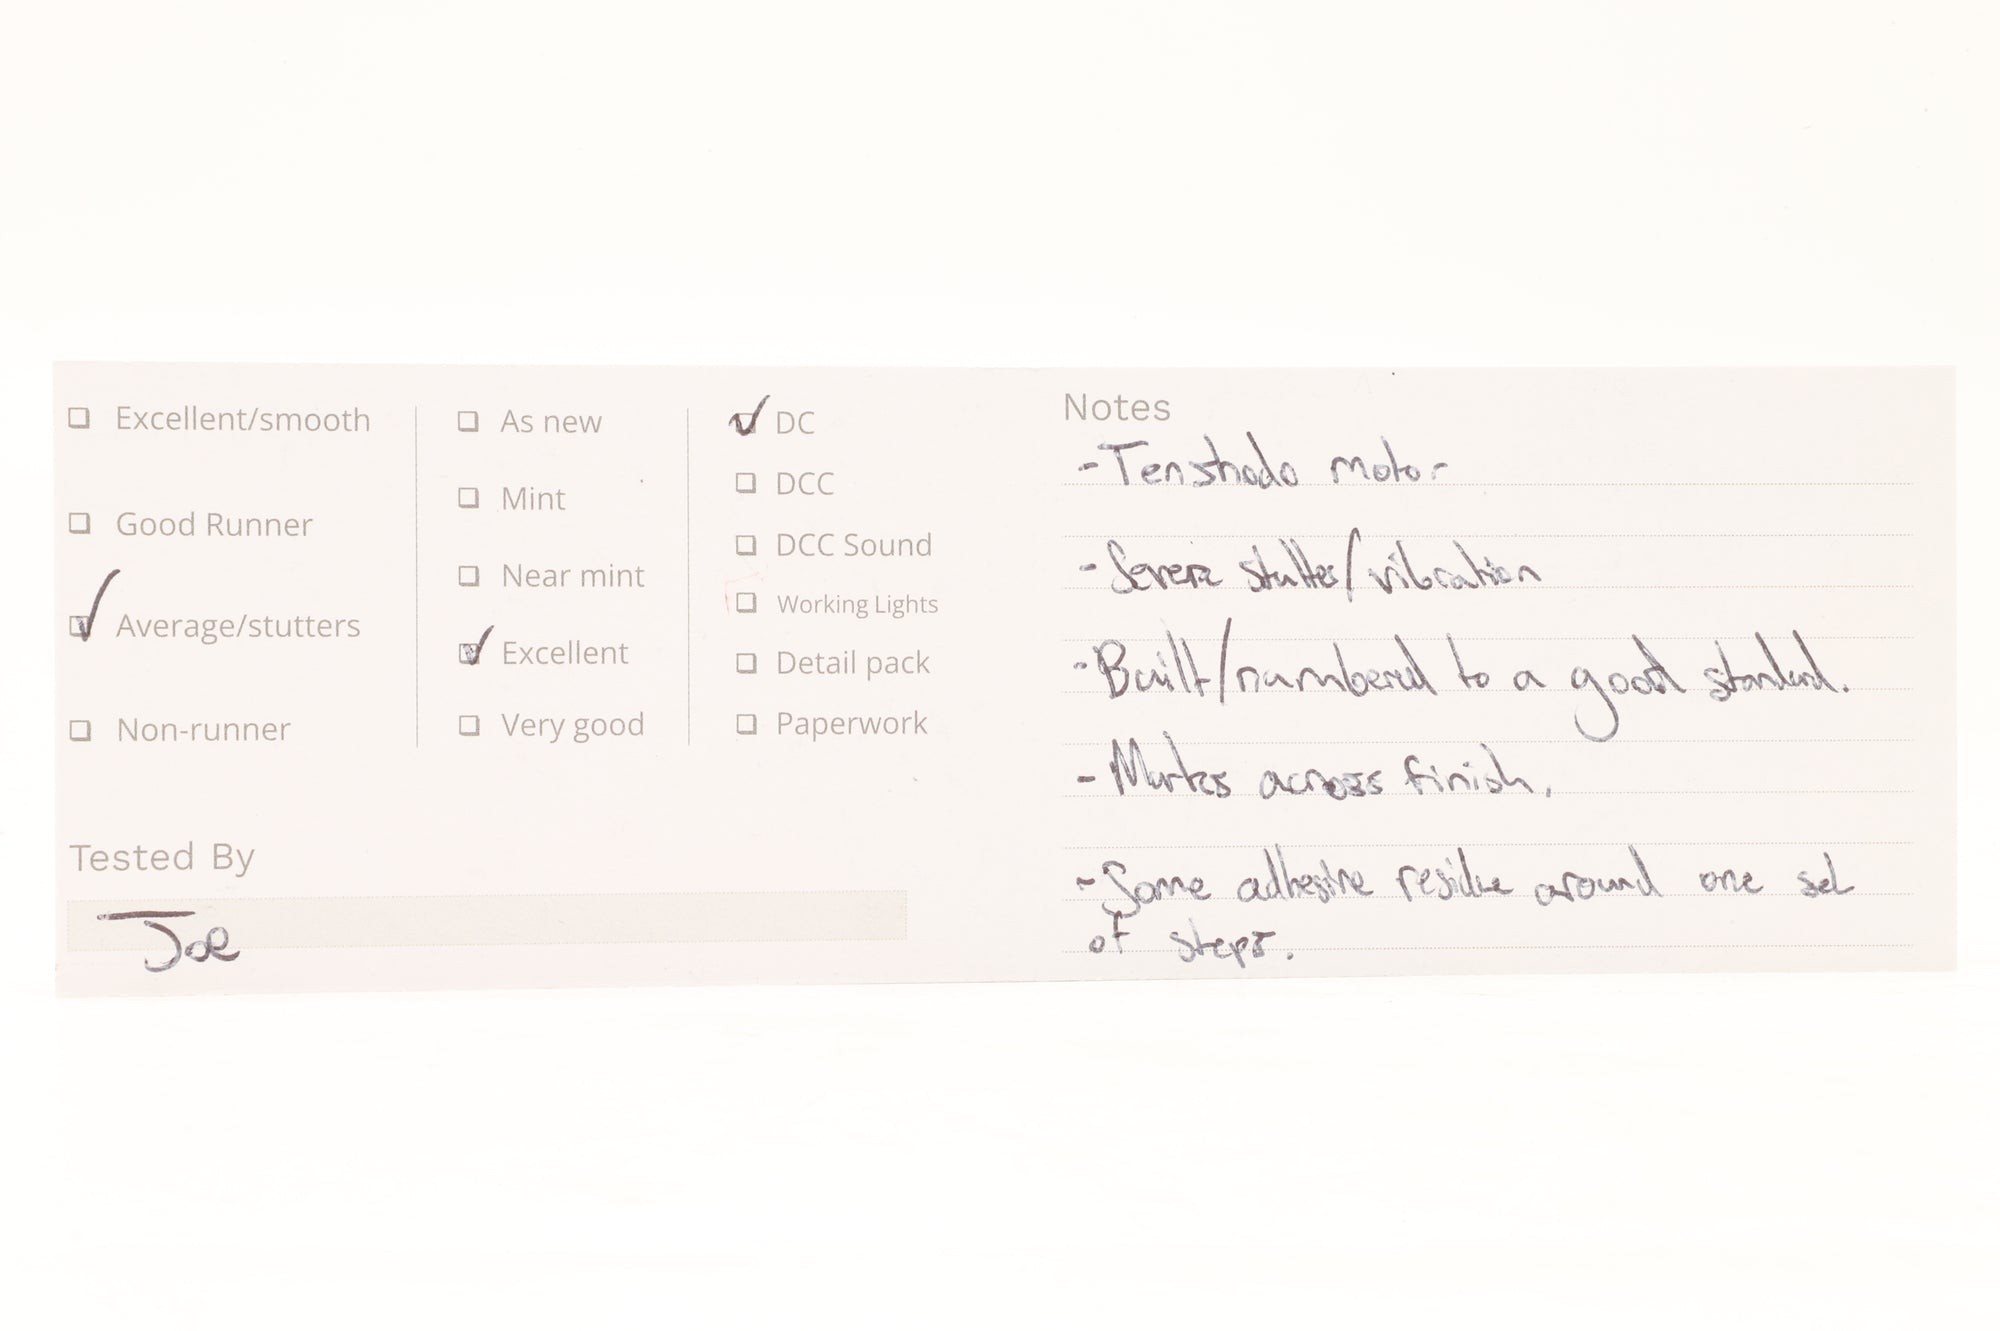 Excellent/smooth
Good Runner
Average/stutters
Non-runner
As new
Mint
Near mint
Excellent
Very good
DC
DCC
DCC Sound
Working Lights
Detail pack
Paperwork
Tested By
Joe
Notes
- Tenshodo motor
- Severe stutter/vibration
- Built/numbered to a good standard.
- Marks across finish.
- Some adhesive residue around one set
of steps.